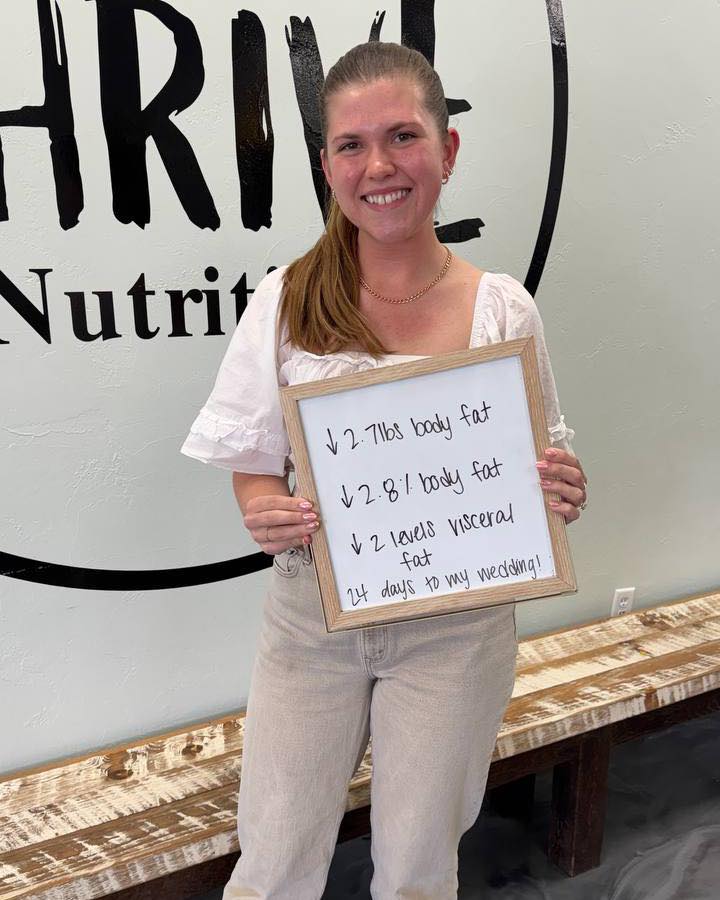 HRIVE
Nutriti
↓ 2.7lbs body fat
↓ 2.8% body fat
↓ 2 levels visceral
fat
24 days to my wedding!